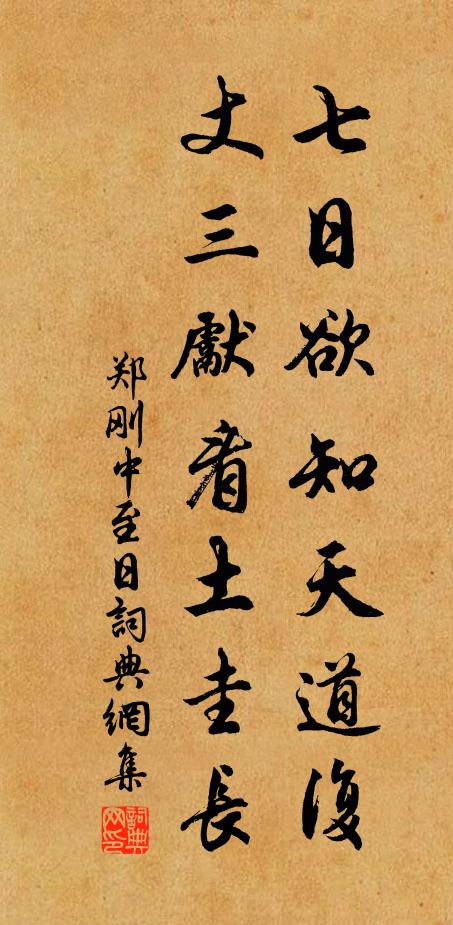 七日欲知天道復
丈三獻看土圭長
郑刚中至日詞典網集
詞典網印